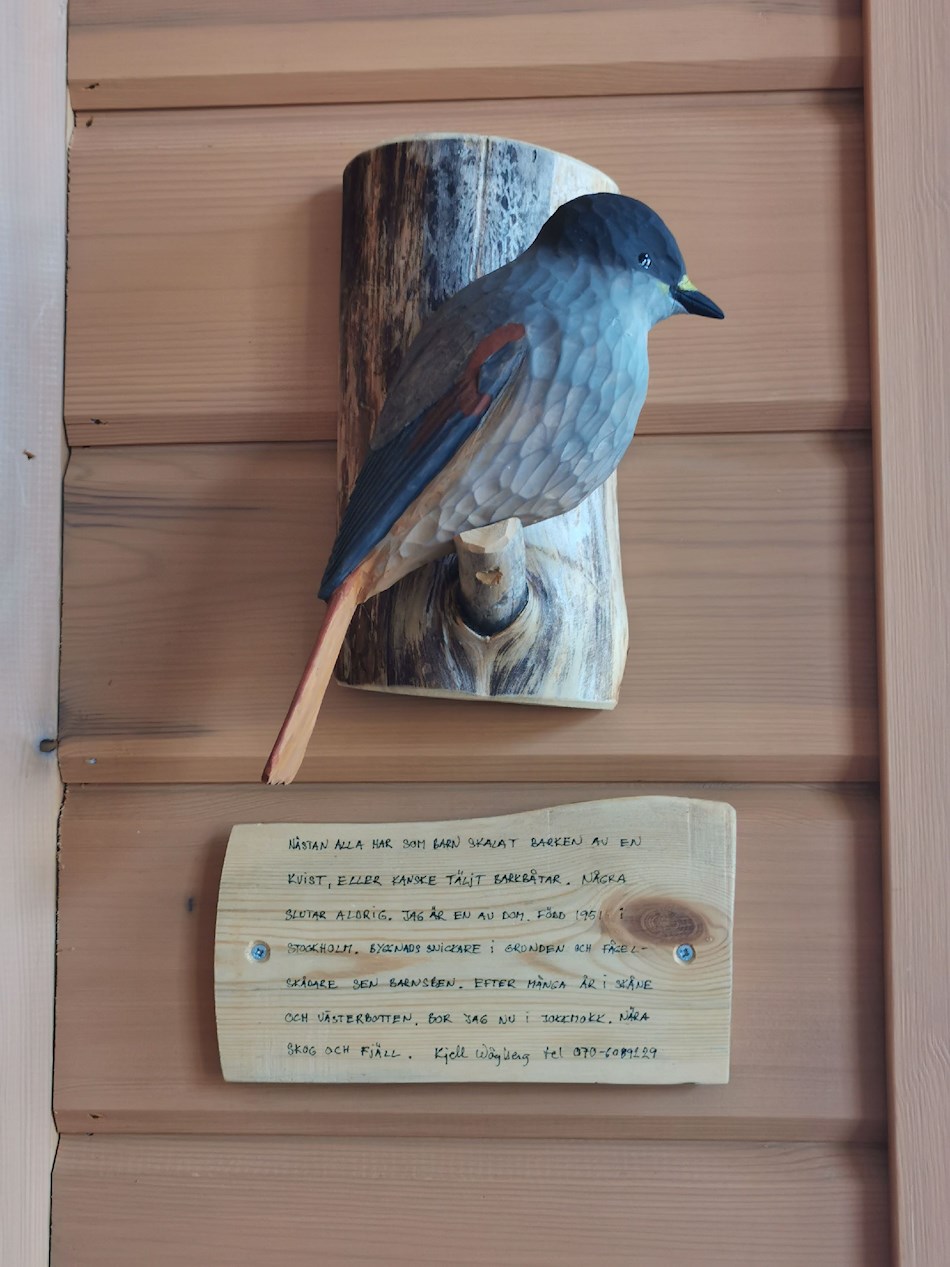 NÄSTAN ALLA HAR SOM BARN SKALAT BARKEN AV EN
KVIST, ELLER KANSKE TÄLJT BARKBÅTAR. NÅGRA
SLUTAR ALDRIG. JAG ÄR EN AV DOM. FÖDD 1951 i
STOCKHOLM. BYGGNADSSNICKARE i GRUNDEN OCH FÅGEL-
SKÅDARE SEN BARNSBEN. EFTER MÅNGA ÅR i SKÅNE
OCH VÄSTERBOTTEN, BOR JAG NU i JOKKMOKK. NÄRA
SKOG OCH FJÄLL. Kjell Wågberg tel 070-6089129